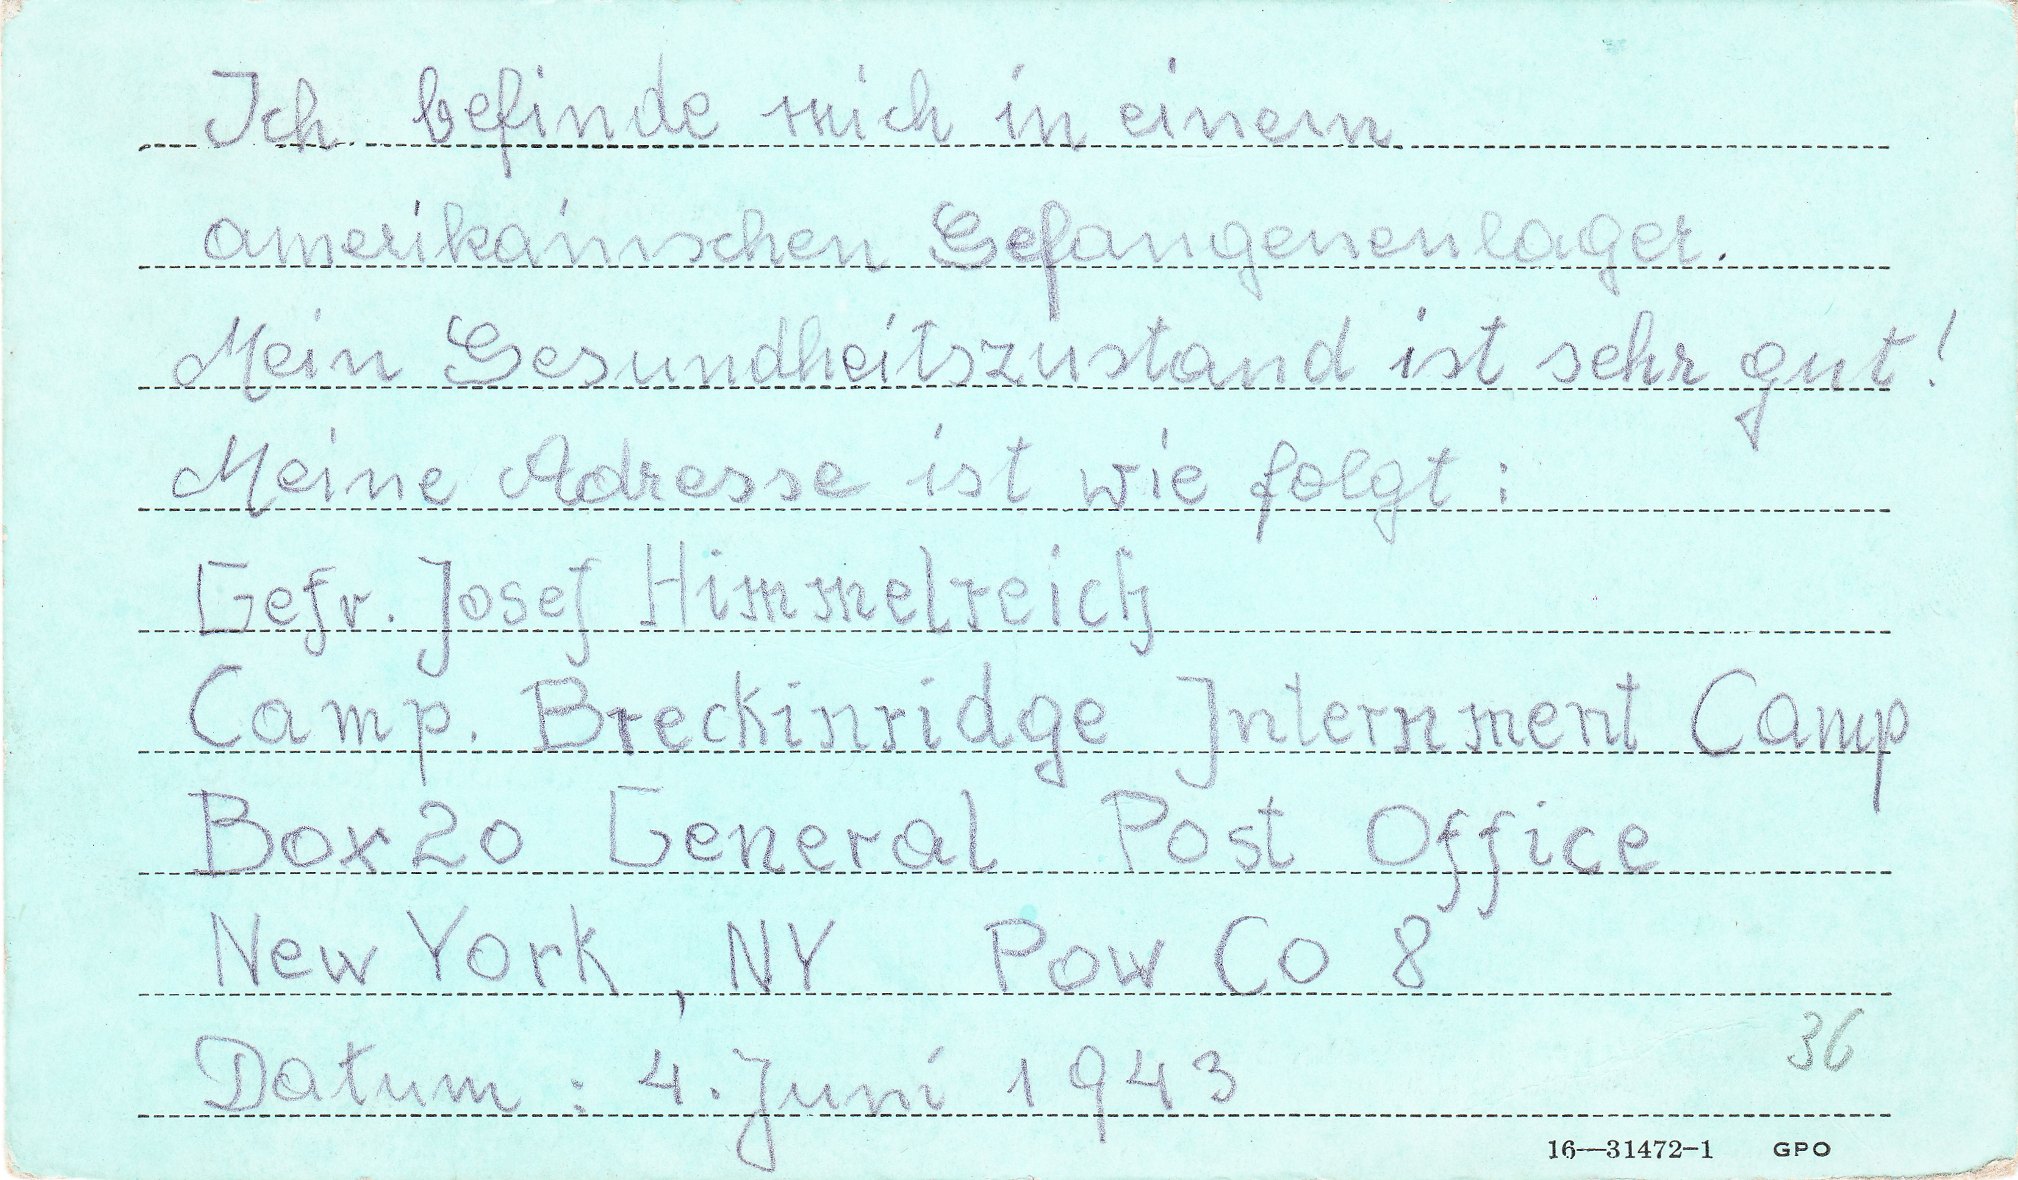 Ich befinde mich in einem
amerikanischen Gefangenenlager.
Mein Gesundheitszustand ist sehr gut!
Meine Adresse ist wie folgt:
Gefr. Josef Himmelreich
Camp. Breckinridge Internment Camp
Box 20 General Post Office
New York, NY Pow Co 8
36
Datum: 4. Juni 1943
16—31472-1 GPO